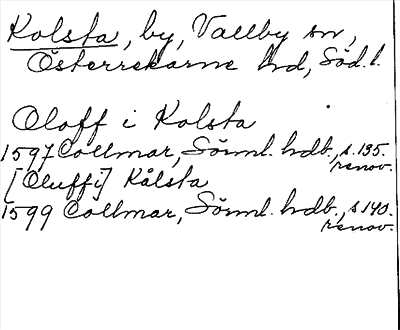 Kolsta, by, Vallby sn,
Österrekarne hd, Söd. l.
Oloff i Kolsta
1597 Collmar, Sörml. hdb., s. 135.
renov.
[Oluff i] Kålsta
1599 Collmar, Sörml. hdb., s 140.
renov.